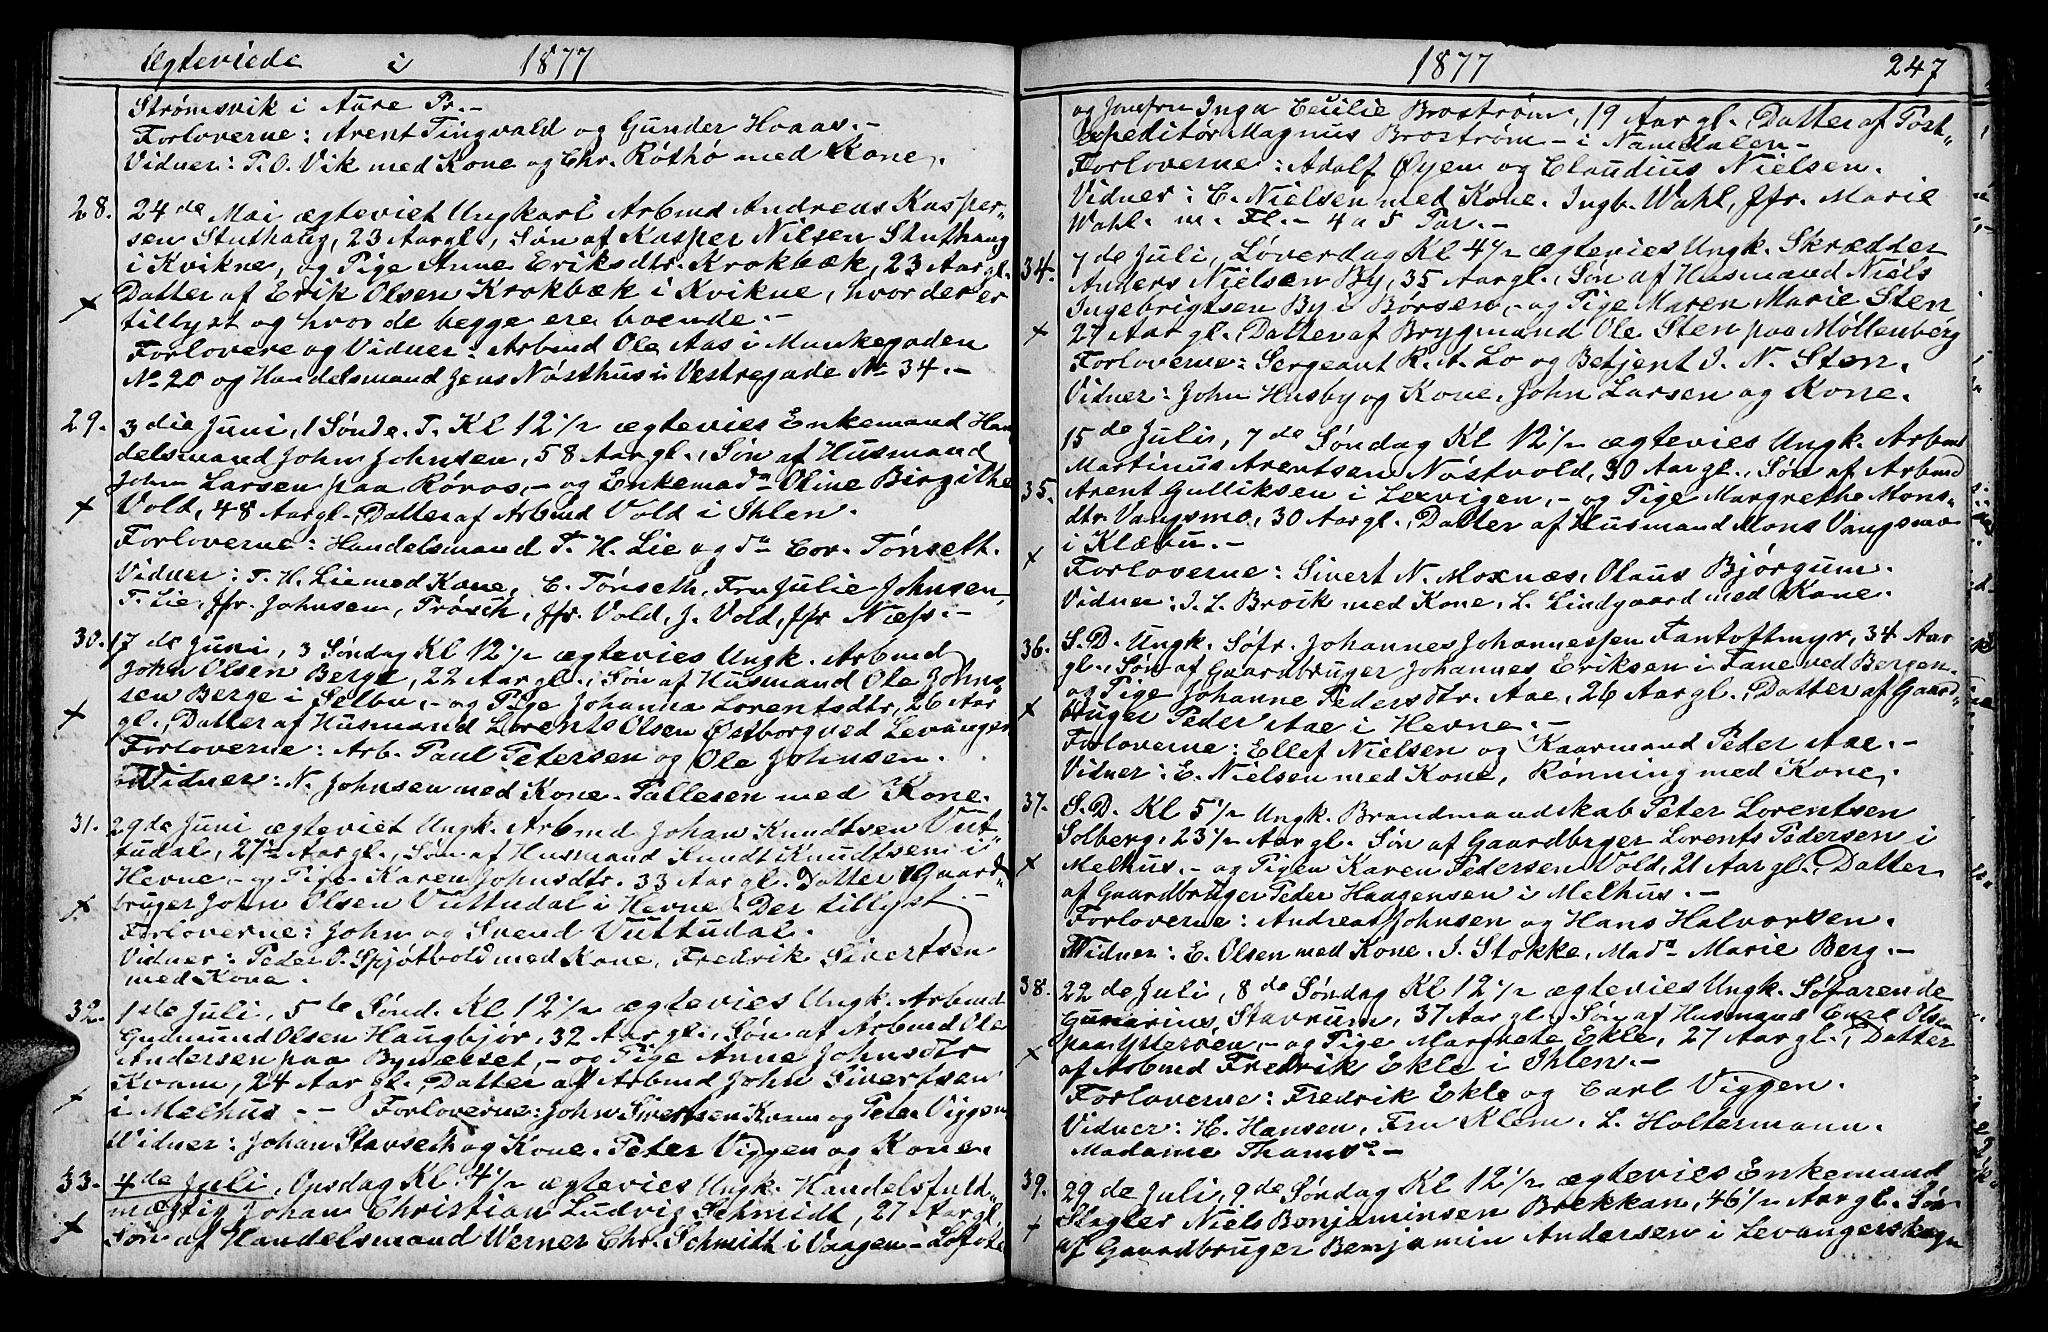 Ægteviede i 1877
Strømsvik i Aure Pr. -
Forloverne: Arent Tingvald og Gunder Hoaas. -
Vidner: P. O. Vik med Kone og Chr. Röthö med Kone.
28. 24de Mai ægteviet Ungkarl Arbmd Andreas Kasper-
sen Stuthaug, 23 Aar gl., Søn af Kasper Nilsen Stuthaug
i Kvikne, og Pige Anne Eriksdtr. Krokbæk, 23 Aar gl.
Datter af Erik Olsen Krokbæk i Kvikne, hvor der er
tillyst og hvor de begge ere boende. -
Forlovere og Vidner: Arbmd Ole Aas i Munkegaden
No 20 og Handelsmand Jens Nösthus i Vestregade No 34. -
29. 3die Juni, 1 Sönd. e. T. Kl 12 1/2 ægtevies Enkemand Han-
delsmand John Johnsen, 58 Aar gl., Søn af Husmand
John Larsen paa Röros, - og Enkemada Oline Birgithe
Vold, 48 Aar gl., Datter af Arbmd Vold i Ihlen.
Forloverne: Handelsmand T. H. Lie og do Cor. Tönseth.
Vidner: T. H. Lie med Kone, C. Tönseth, Fru Julie Johnsen,
T. Lie, Jfr. Johnsen, Trösch, Jfr. Vold, J. Vold, Jfr Næss. -
30. 17de Juni, 3 Söndag Kl 12 1/2 ægtevies Ungk. Arbmd
John Olsen Berge, 22 Aar gl., Søn af Husmand Ole Johns-
sen Berge i Selbu, - og Pige Johanna Lorentsdtr, 26 Aar
gl., Datter af Husmand Lorents Olsen Østborg ved Levanger
Forloverne: Arb. Paul Petersen og Ole Johnsen.
Vidner: N. Johnsen med Kone. Tallesen med Kone.
31. 29de Juni ægteviet Ungk. Arbmd Johan Knudtsen Vut-
tudal, 27 1/2 Aar gl., Søn af Husmand Knudt Knudtsen i
Hevne, - og Pige Karen Johnsdtr. 33 Aar gl. Datter Gaard-
bruger John Olsen Vuttudal i Hevne. Der tillyst. -
Forloverne: John og Svend Vuttudal.
Vidner: Peder O. Spjötvold med Kone, Fredrik Sivertsen
med Kone.
32. 1ste Juli, 5te Sönd. Kl 12 1/2 ægtevies Ungk. Arbmd
Gudmund Olsen Haugbjör, 32 Aar gl., Søn af Arbmd Ole
Andersen paa Bynæsset, - og Pige Anne Johnsdtr
Kvam, 24 Aar gl., Datter af Arbmd John Sivertsen
i Melhus. - - Forloverne: John Sivertsen Kvam og Peter Viggen
Vidner: Johan Stavseth og Kone. Peter Viggen og Kone.
33. 4de Juli, Onsdag Kl. 4 1/2 ægtevies Ungk. Handelsfuld-
mægtig Johan Christian Ludvig Schmidt, 27 Aar gl.,
Søn af Handelsmand Werner Chr. Schmidt i Vaagen - Lofoten
1877 247
og Jomfru Inga Cecilie Broström, 19 Aar gl. Datter af Post-
expeditör Magnus Broström - i Namdalen -
Forloverne: Adolf Øyem og Claudius Nielsen.
Vidner: C. Nielsen med Kone. Ingb. Wahl, Jfr. Marie
Wahl. m. Fl. - 4 a 5 Par. -
34. 7de Juli, Löverdag Kl 4 1/2 ægtevies Ungk. Skrædder
Anders Nielsen By, 35 Aar gl., Søn af Husmand Niels
Ingebrigtsen By i Börsen, - og Pige Maren Marie Sten
27 Aar gl., Datter af Brygmand Ole Sten paa Möllenberg
Forloverne: Sergeant R. A. Lo og Betjent I. N. Sten.
Vidner: John Husby og Kone. John Larsen og Kone.
35. 15de Juli, 7de Söndag Kl 12 1/2 ægtevies Ungk. Arbmd
Martinus Arentsen Nöstvold, 30 Aar gl., Søn af Arbmd
Arent Gulliksen i Lexvigen, - og Pige Margrethe Mons-
dtr. Vangsmo, 30 Aar gl., Datter af Husmand Mons Vangsmo
i Klæbu. -
Forloverne: Sivert N. Moxnæs, Olaus Bjørgum.
Vidner: I. L. Broik med Kone. L. Lindgaard med Kone.
36. S. D. Ungk. Söfr. Johannes Johannessen Fantoftmyr, 34 Aar
gl., Søn af Gaardbruger Johannes Eriksen i Fane ved Bergen
og Pige Johanne Pedersdtr. Aae, 26 Aar gl., Datter af Gaard-
bruger Peder Aae i Hevne. -
Forloverne: Ellef Nielsen og Kaarmand Peder Aae. -
Vidner: E. Nielsen med Kone, Rönning med Kone.
37. S. D. Kl 5 1/2 Ungk. Brandmandskab Peter Lorentsen
Solberg, 23 1/2 Aar gl. Søn af Gaardbrger Lorents Pedersen i
Melhus. - og Pigen Karen Pedersen Vold, 21 Aar gl., Datter
af Gaardbruger Peder Haagensen i Melhus. -
Forloverne: Andreas Johnsen og Hans Halvorsen.
Vidner: E. Olsen med Kone. I. Stokke, Mada Marie Berg. -
38. 22de Juli, 8de Söndag Kl 12 1/2 ægtevies Ungk. Söfarende
Gunerius Stavrum, 37 Aar gl. Søn af Husmand Olsen
paa Ytterøen, - og Pige Margrete Ekle, 27 Aar gl., Datter
af Arbmd Fredrik Ekle i Ihlen. -
Forloverne: Fredrik Ekle og Carl Viggen.
Vidner: H. Hansen, Fru Klem. L. Holtermann.
Madame Thams. -
39. 29de Juli, 9de Söndag Kl 12 1/2 ægtevies Enkemand
Slagter Niels Benjaminsen Brekkan, 46 1/2 Aar gl. Søn
af Gaardbruger Benjamin Andersen i Levangerskogn